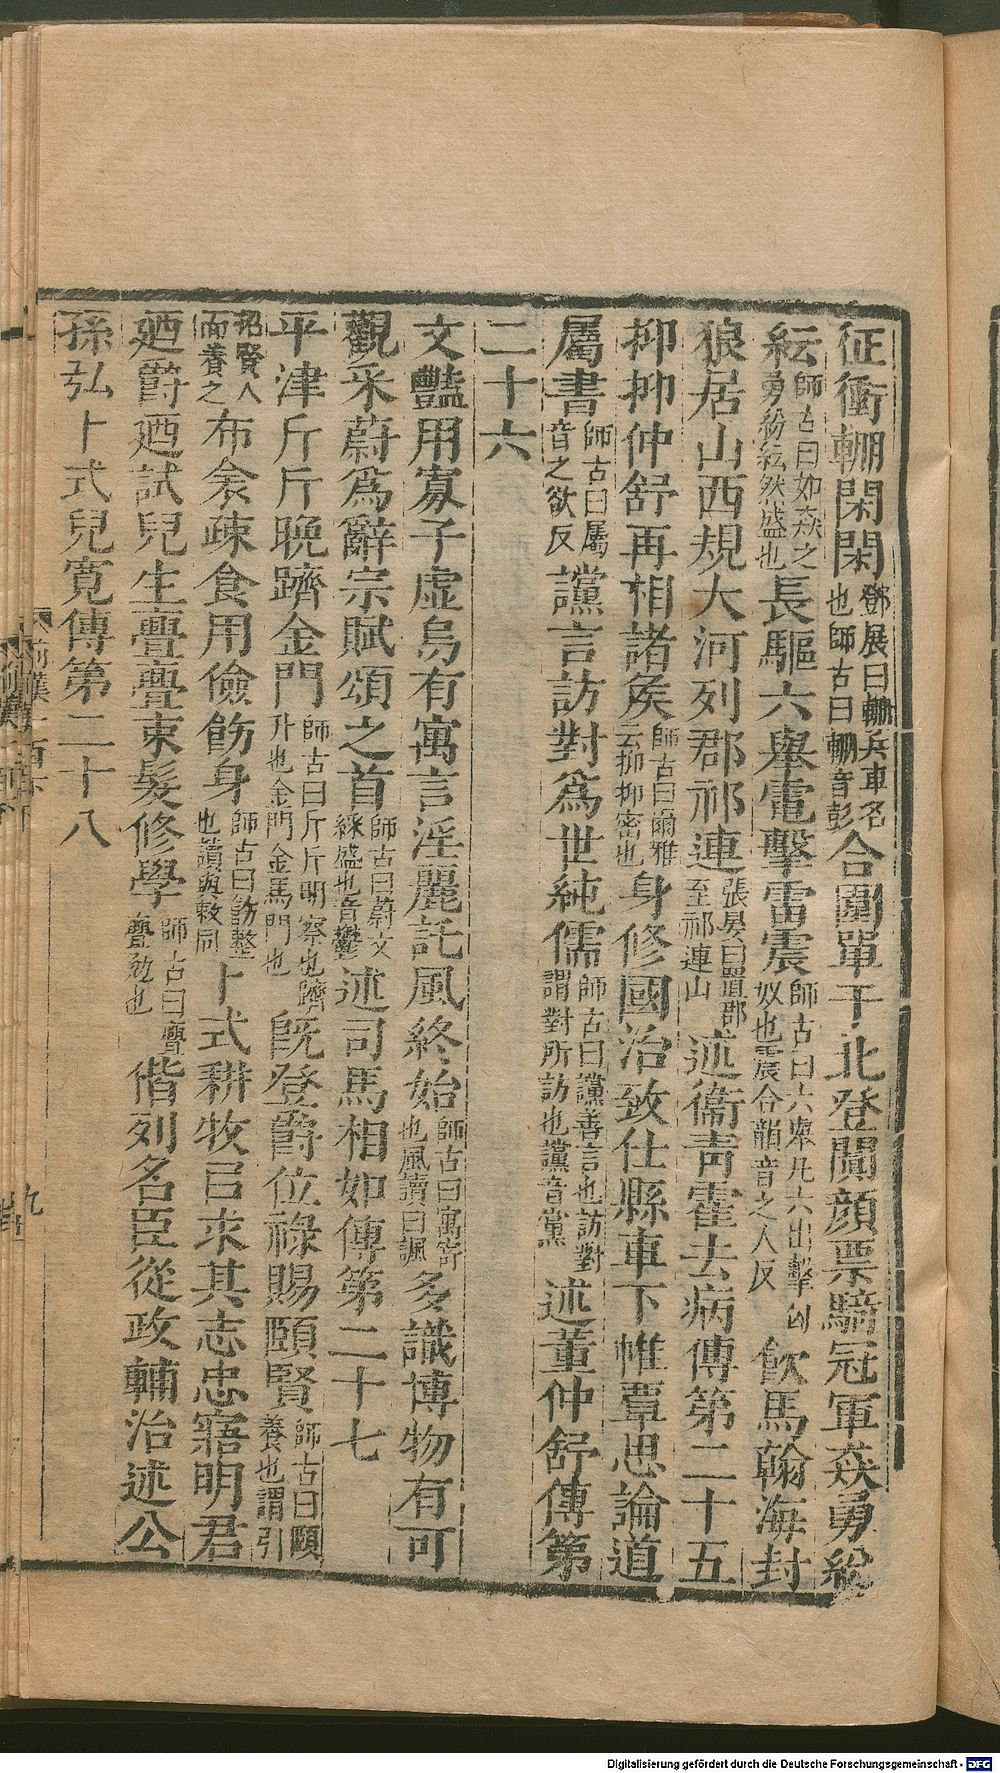 征衝輣閑閑鄧展曰輣兵車名也師古曰輣音彭合圍單于北登闐顏票騎冠軍猋勇紛
紜師古曰如猋之勇紛紜然盛也長驅六舉電擊雷震師古曰六舉凡六出擊匈奴也震合韻音之人反飲馬翰海封
狼居山西規大河列郡祁連張晏曰置郡至祁連山述衞青霍去病傳第二十五
抑抑仲舒再相諸侯師古曰爾雅云抑抑密也身修國治致仕縣車下帷覃思論道
屬書師古曰屬音之欲反讜言訪對爲世純儒師古曰讜善言也訪對謂對所訪也讜音黨述董仲舒傳第
二十六
文豔用寡子虛烏有寓言淫麗託風終始師古曰寓寄也風讀曰諷多識博物有可
觀采蔚爲辭宗賦頌之首師古曰蔚文綵盛也音鬱述司馬相如傳第二十七
平津斤斤晚躋金門師古曰斤斤明察也躋升也金門金馬門也旣登爵位祿賜頤賢師古曰頤養也謂引
招賢人而養之布衾疎食用儉飭身師古曰飭整也讀與敕同卜式耕牧㠯求其志忠寤明君
迺爵迺試兒生亹亹束髮修學師古曰亹亹勉也偕列名臣從政輔治述公
孫弘卜式兒寬傳第二十八
Digitalisierung gefördert durch die Deutsche Forschungsgemeinschaft - DFG